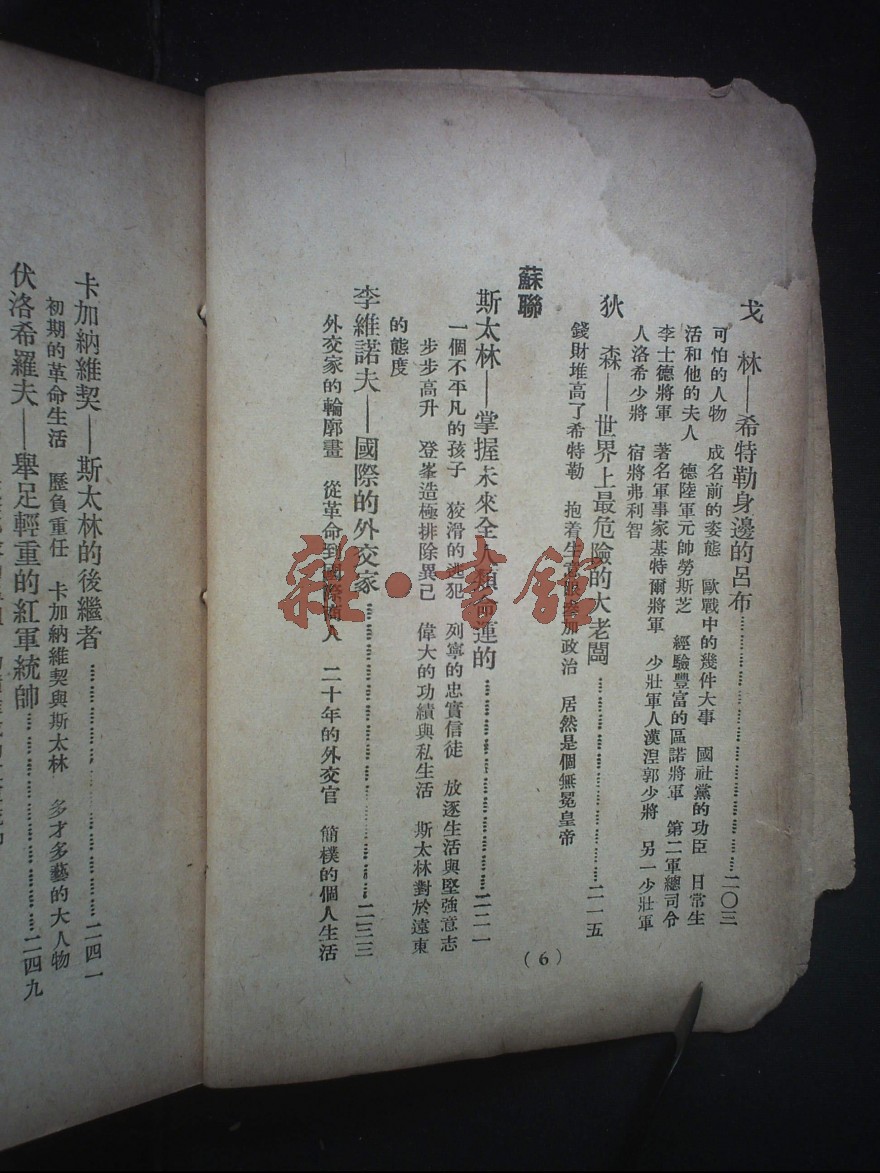 戈　林——希特勒身邊的呂布…………二〇三
可怕的人物　成名前的姿態　歐戰中的幾件大事　國社黨的功臣　日常生
活和他的夫人　德陸軍元帥勞斯芝　經驗豐富的區諾將軍　第二軍總司令
李士德將軍　著名軍事家基特爾將軍　少壯軍人漢涅郭少將　另一少壯軍
人洛希少將　宿將弗利智
狄　森——世界上最危險的大老闆…………二一五
錢財堆高了希特勒　抱着生意眼參加政治　居然是個無冕皇帝
蘇聯
斯太林——掌握未來全人類命運的…………二二一
一個不平凡的孩子　狡滑的逃犯　列寧的忠實信徒　放逐生活與堅強意志
步步高升　登峯造極排除異己　偉大的功績與私生活　斯太林對於遠東
的態度
李維諾夫——國際的外交家…………二三三
外交家的輪廓畫　從革命到國際商人　二十年的外交官　簡樸的個人生活
（6）
卡加納維契——斯太林的後繼者…………二四一
初期的革命生活　歷負重任　卡加納維契與斯太林　多才多藝的大人物
伏洛希羅夫——舉足輕重的紅軍統帥…………二四九
雜·書館